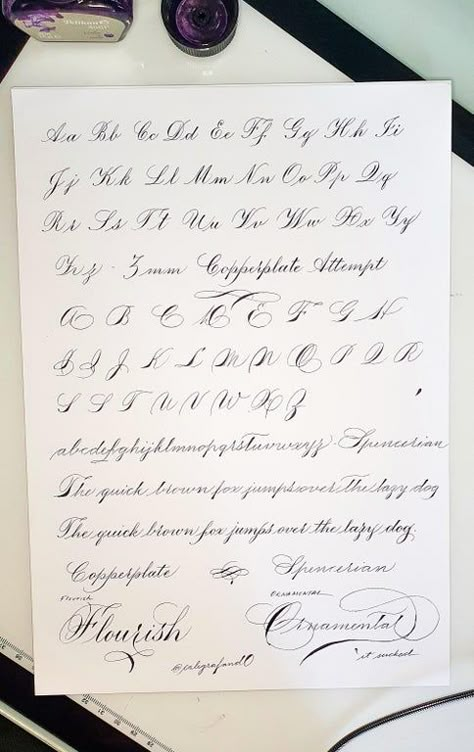 Pelikan
4001
Aa Bb Cc Dd Ee Ff Gg Hh Ii
Jj Kk Ll Mm Nn Oo Pp Qq
Rr Ss Tt Uu Vv Ww Xx Yy
Zz z · 3mm Copperplate Attempt
A B C D E F G H
I J J K L M N O P Q R
S S T U V W X Z
abcdefghijklmnopqrstuvwxyz · Spencerian
The quick brown fox jumps over the lazy dog
The quick brown fox jumps over the lazy dog.
Copperplate Spencerian
Flourish ORNAMENTAL
Flourish Ornamental
@caligrafando it sucked